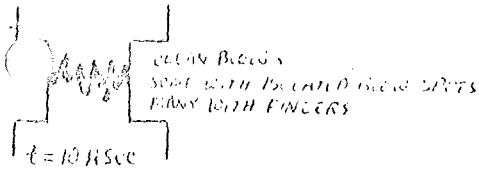 CLEAN BLOWS
SOME WITH ISOLATED BLOW SPOTS
MANY WITH FINGERS
t = 10 µsec